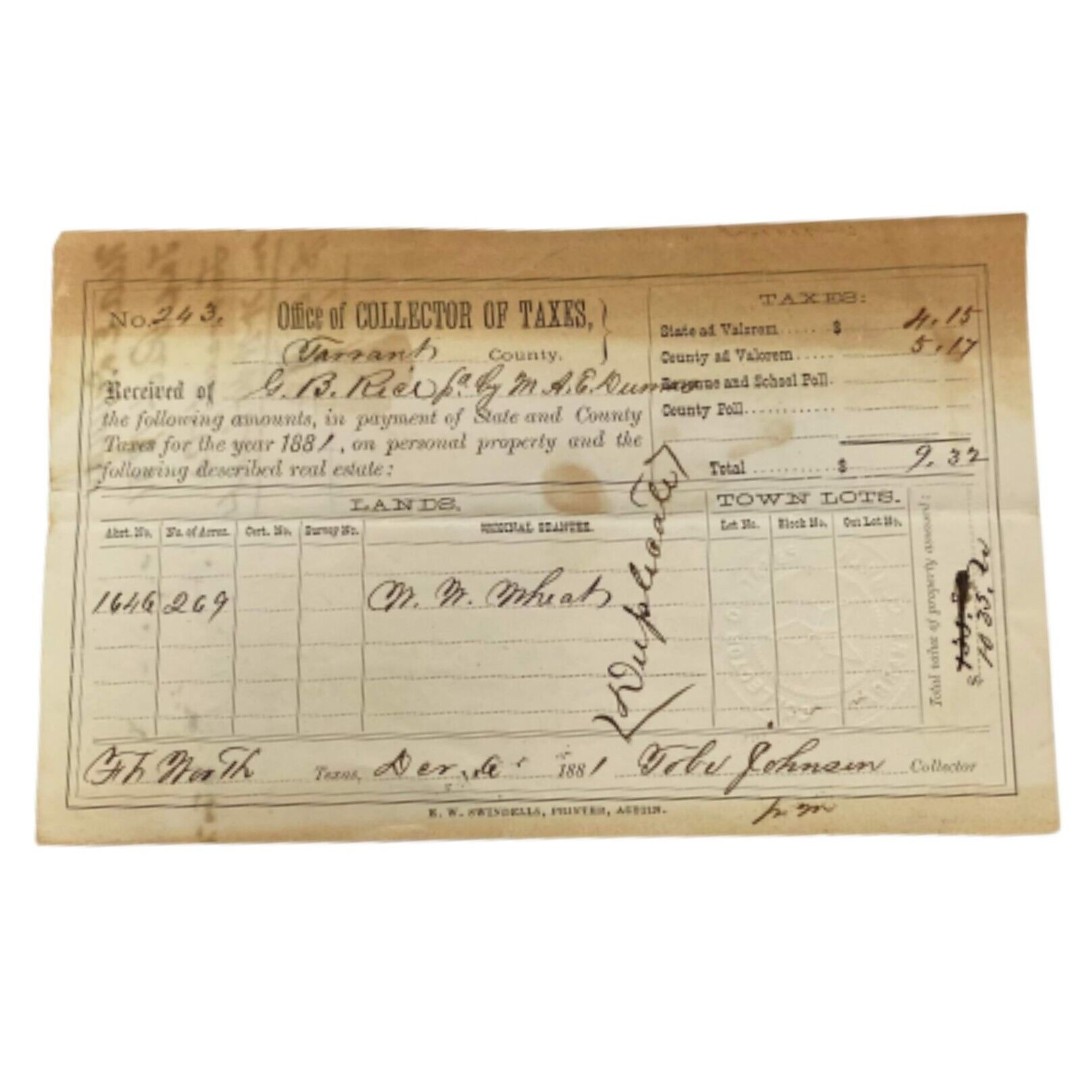 No. 243.
Office of COLLECTOR OF TAXES,
Tarrant County.
Received of G. B. Rice pd by M. A. E.
the following amounts, in payment of State and County
Taxes for the year 1881, on personal property and the
following described real estate:
TAXES:
State ad Valorem ..... $ 4.15
County ad Valorem ..... 5.17
Revenue and School Poll.
County Poll...........
Total .......... $ 9.32
LANDS. TOWN LOTS.
Abst. No. No. of Acres. Cert. No. Survey No. ORIGINAL GRANTEE. Lot No. Block No. Out Lot No.
1646 269 W. W. Wheat
(Duplicate)
Total value of property assessed:
$ 1035.
Ft Worth Texas, Dec. 6 1881 Tobe Johnson Collector
E. W. SWINDELLS, PRINTER, AUSTIN.